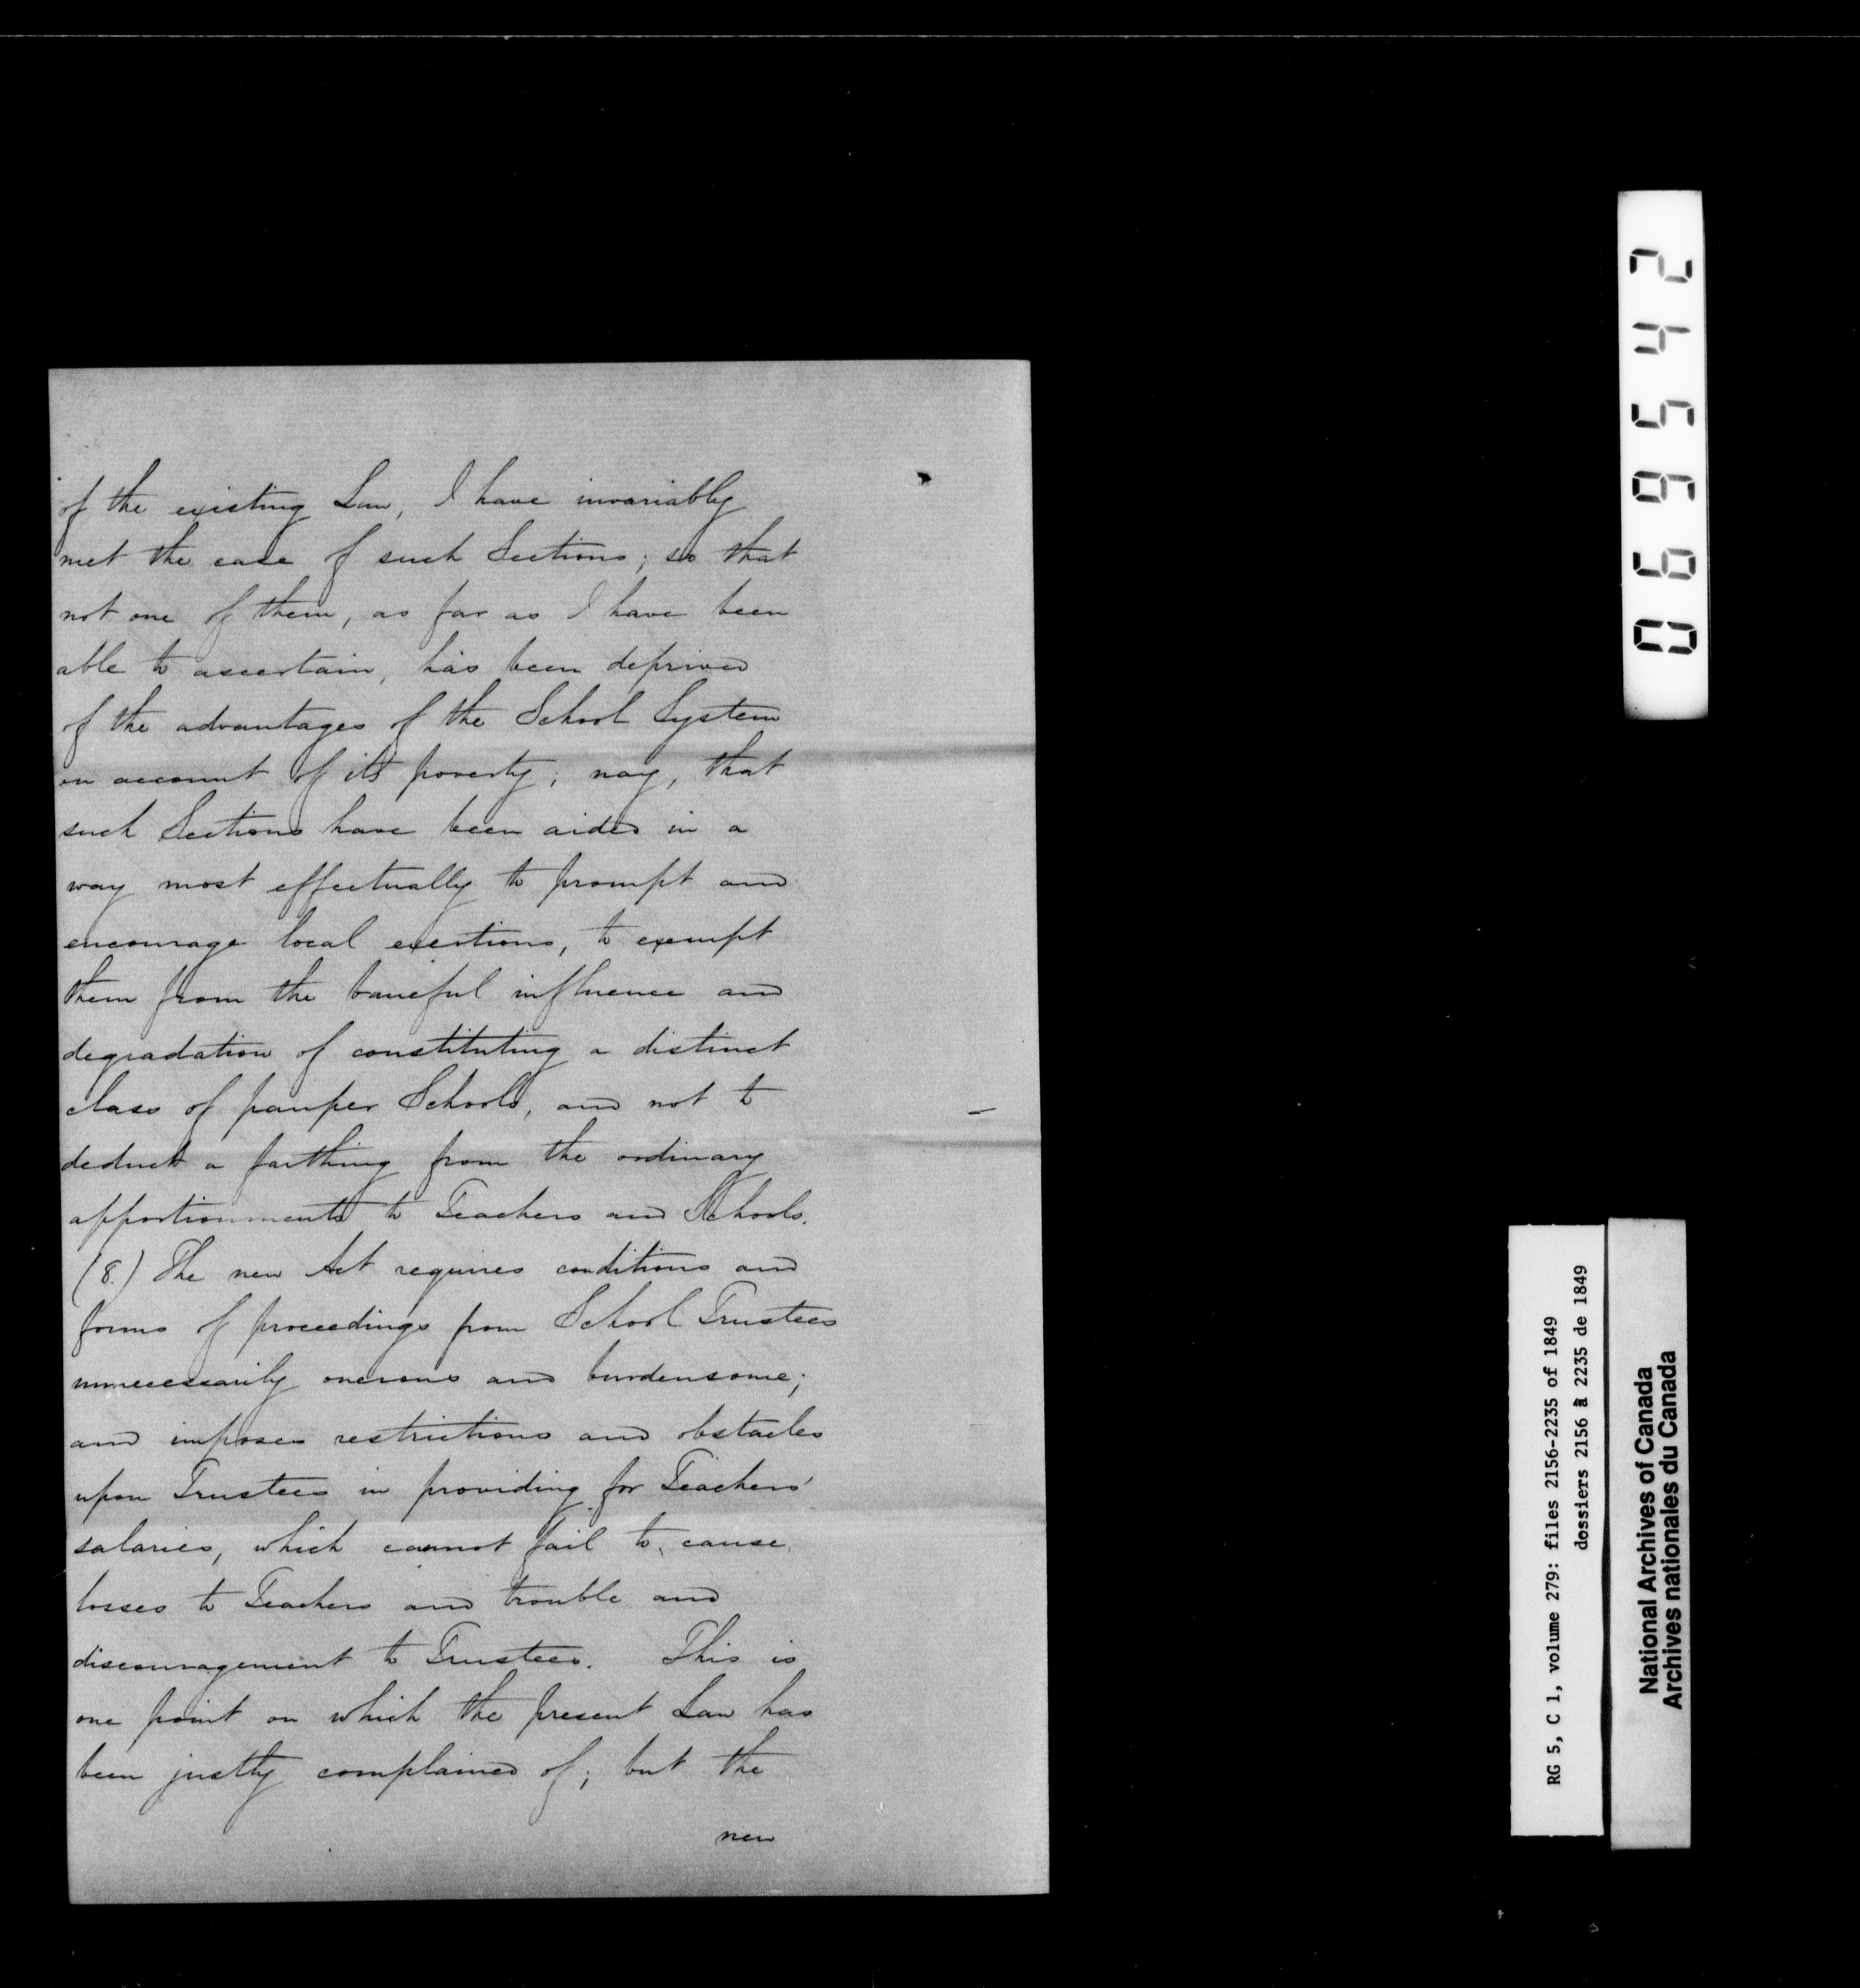 of the existing Law, I have invariably
met the case of such Sections; so that
not one of them, as far as I have been
able to ascertain, has been deprived
of the advantages of the School System
on account of its poverty; nay, that
such Sections have been aided in a
way most effectually to prompt and
encourage local exertions, to exempt
them from the baneful influence and
degradation of constituting a distinct
class of pauper Schools, and not to
deduct a farthing from the ordinary
apportionments to Teachers and Schools.
(8.) The new Act requires conditions and
forms of proceedings from School Trustees
unnecessarily onerous and burdensome;
and imposes restrictions and obstacles
upon Trustees in providing for Teachers'
salaries, which cannot fail to cause
losses to Teachers and trouble and
discouragement to Trustees. This is
one point on which the present Law has
been justly complained of; but the
new
069542
RG 5, C 1, volume 279: files 2156-2235 of 1849
dossiers 2156 à 2235 de 1849
National Archives of Canada
Archives nationales du Canada